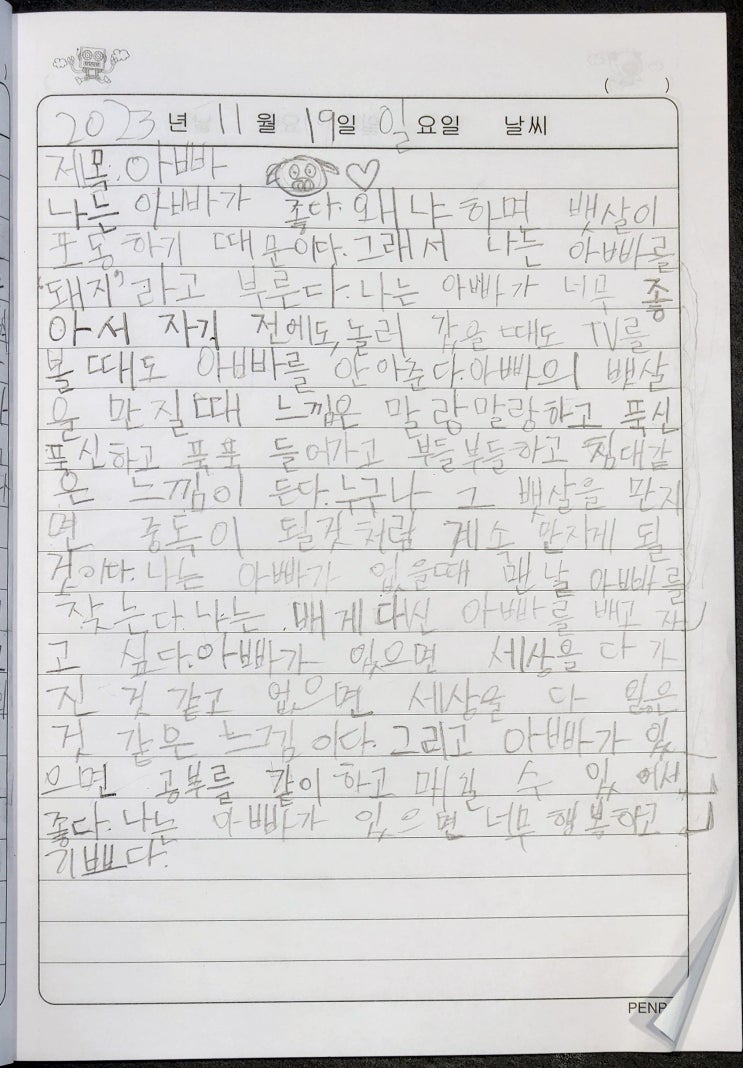 ( )
2023년 11월 19일 일요일 날씨
제목. 아빠
나는 아빠가 좋다. 왜냐하면 뱃살이
포동하기 때문이다. 그래서 나는 아빠를
"돼지"라고 부른다. 나는 아빠가 너무 좋
아서 자기 전에도, 놀러 갔을 때도 TV를
볼때도 아빠를 안아준다. 아빠의 뱃살
을 만질때 느낌은 말랑말랑하고 푹신
푹신하고 푹푹 들어가고 부들부들하고 침대같
은 느낌이 든다. 누구나 그 뱃살을 만지
면 중독이 될것처럼 계소 만지게 될
것이다. 나는 아빠가 없을때 맨날 아빠를
찾는다. 나는 베게 대신 아빠를 배고 자
고 싶다. 아빠가 있으면 세상을 다 가
진 것 같고 없으면 세상을 다 잃은
것 같은 느낌이다. 그리고 아빠가 있
으면 공부를 같이 하고 매길 수 있어서
좋다. 나는 아빠가 있으면 너무 행복하고
기쁘다.